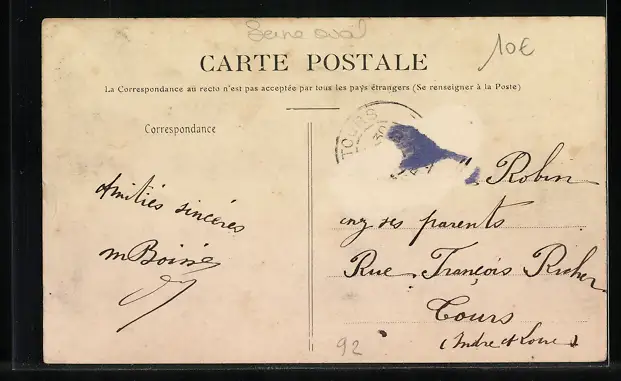 Seine oval
10€
CARTE POSTALE
La Correspondance au recto n'est pas acceptée par tous les pays étrangers (Se renseigner à la Poste)
Correspondance
Amitiés sincères
TOURS
Robin
chez ses parents
Rue François Richer
Tours
(Indre et Loire)
92